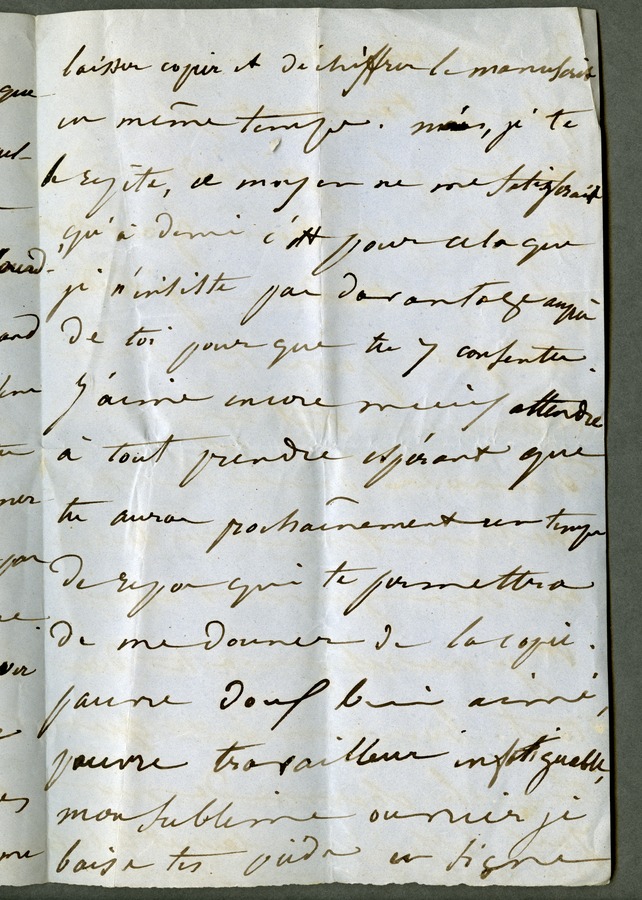 laisser copier et déchiffrer le manuscrit
en même temps. mais, je te
le répète, ce moyen ne me satisferait
qu'à demi c'est pour cela que
je n'insiste pas davantage auprès
de toi pour que tu y consentes.
J'aime encore mieux attendre
à tout prendre espérant que
tu auras prochainement un temps
de repos qui te permettra
de me donner de la copie.
pauvre doux bien aimé,
pauvre travailleur infatiguable,
mon sublime ouvrier je
baise tes pieds en signe